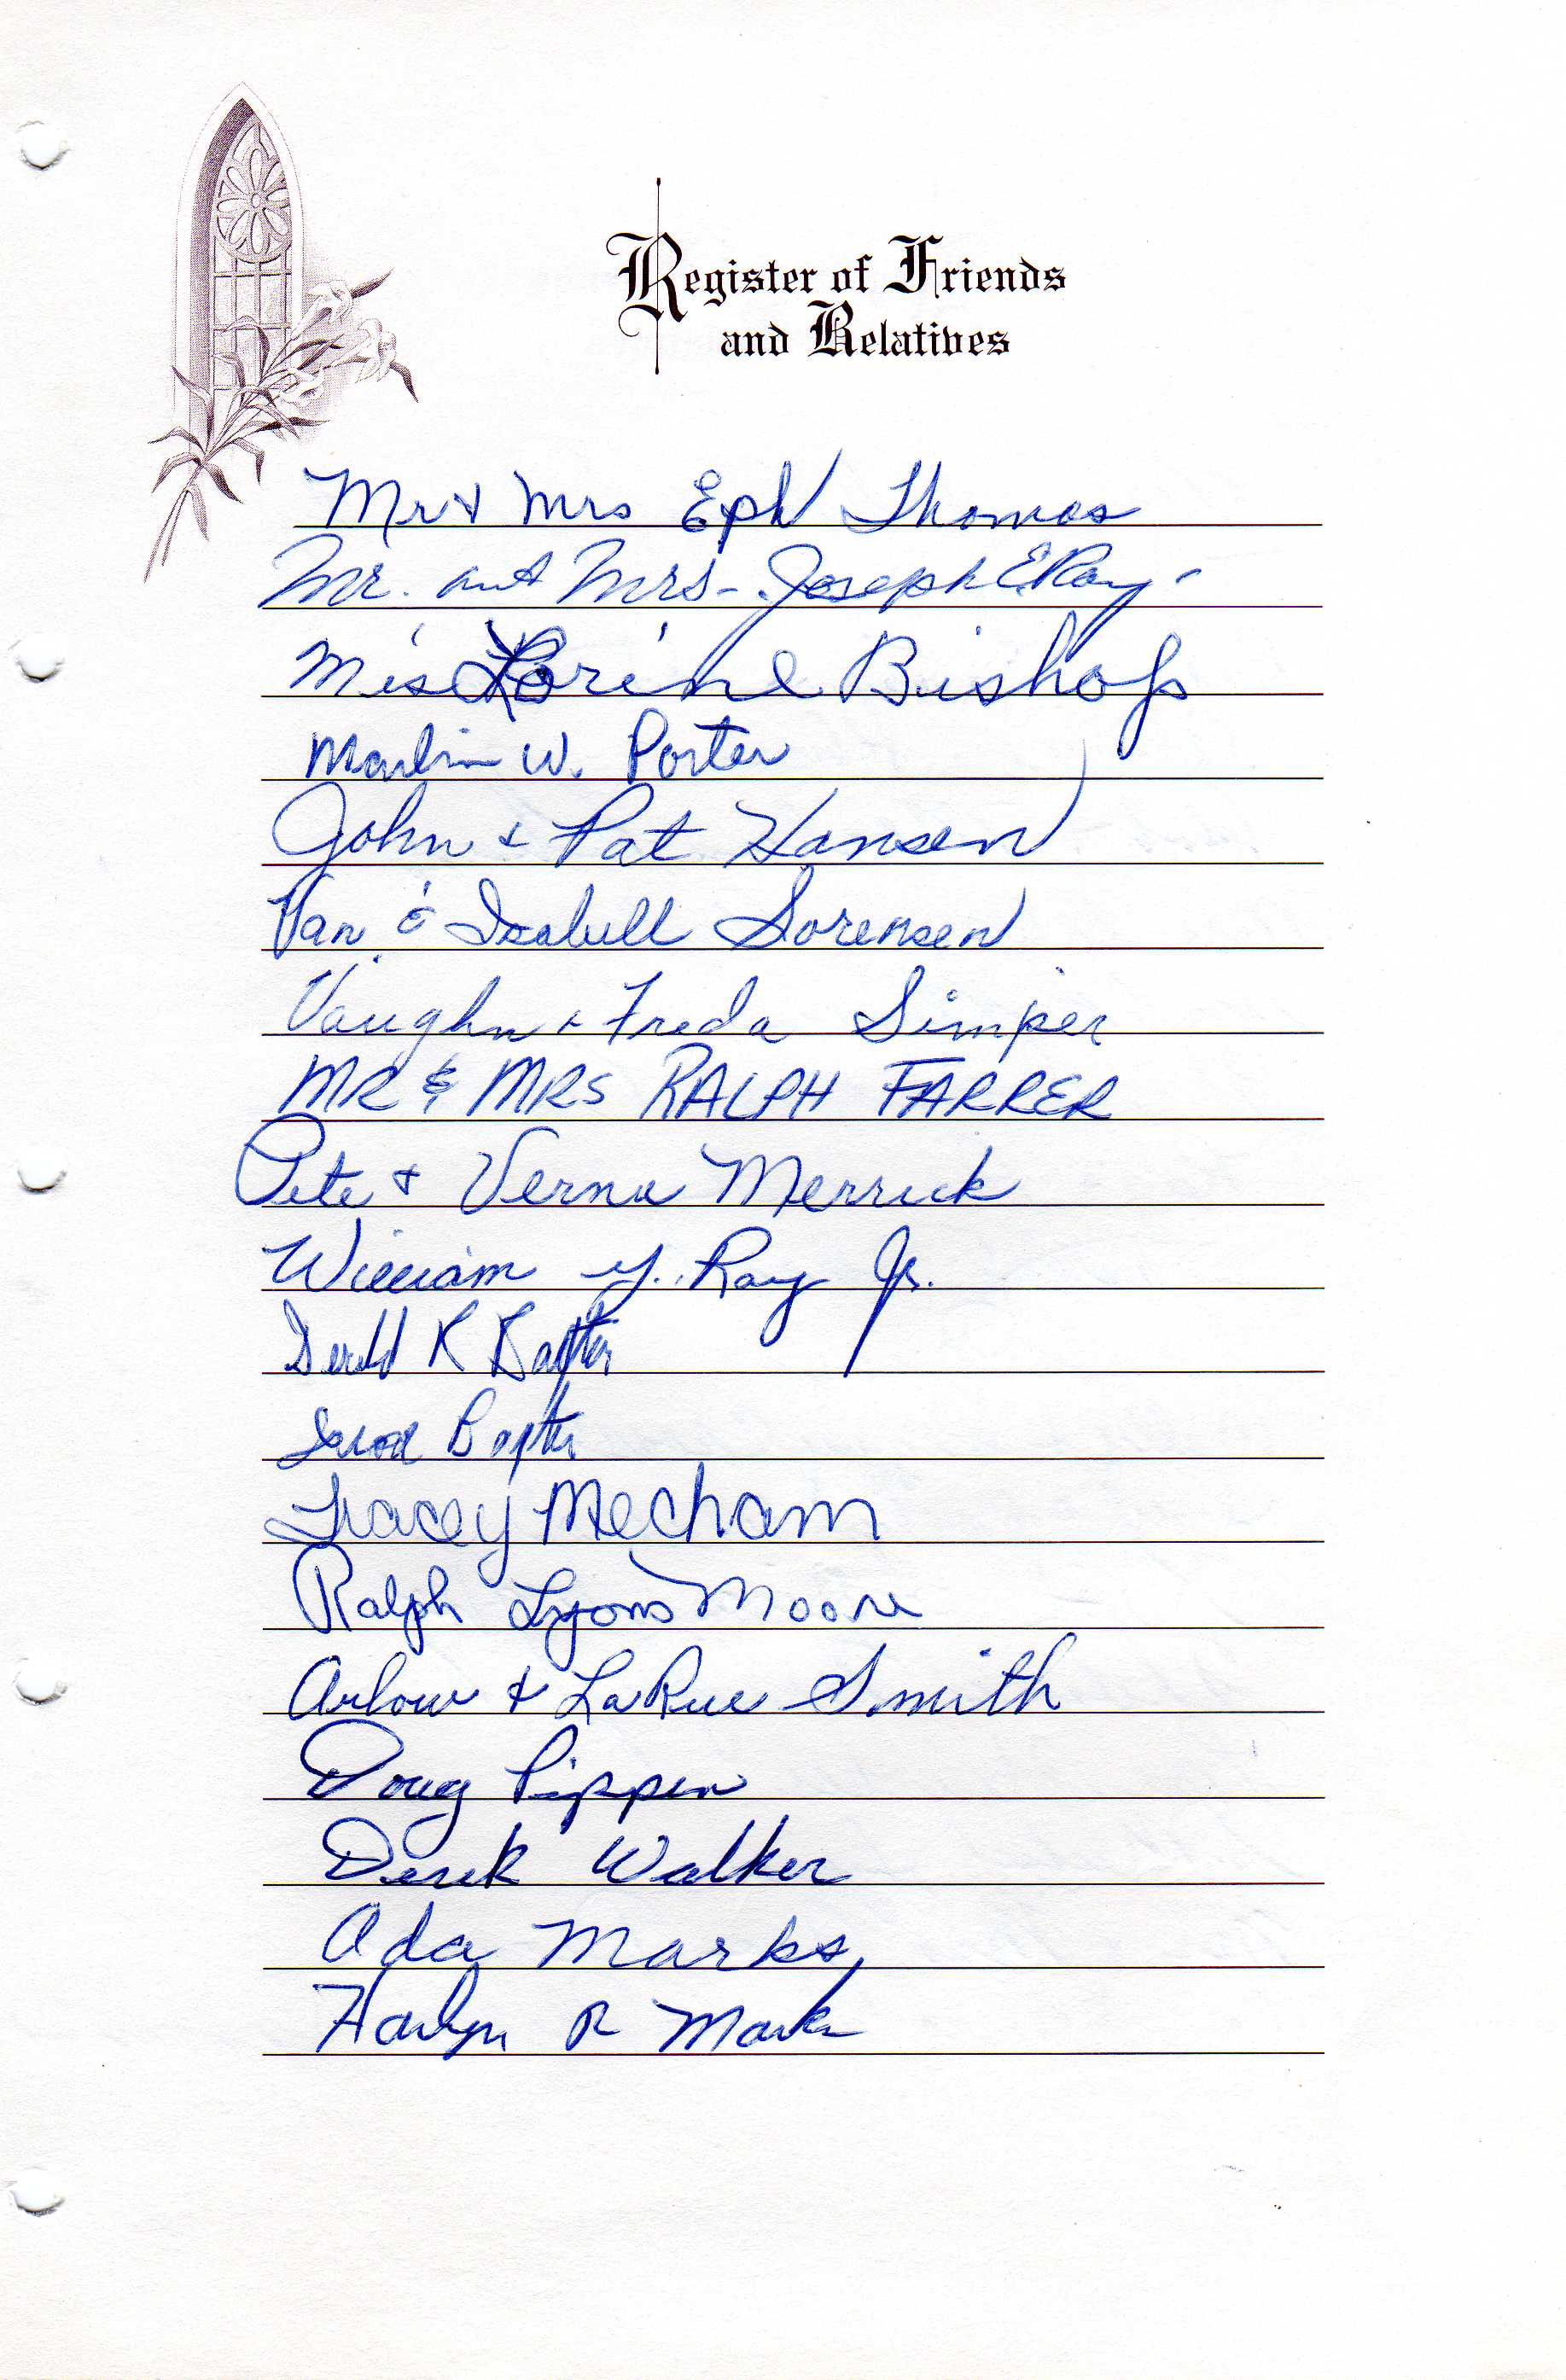 Register of Friends
and Relatives
Mr & Mrs Eph Thomas
Mr. and Mrs - Joseph E Ray -
Mis Lorine Bishop
Marlin W. Porter
John & Pat Hansen
Van & Isabell Sorensen
Vaughn & Freda Simper
MR & MRS RALPH FARRER
Pete & Verna Merrick
William Y. Ray Jr.
K Baxter
Baxter
Tracey Mecham
Ralph Lyons Moore
Arlow & LaRue Smith
Doug Pippen
Derek Walker
Ada Marks
Harlyn R Marks